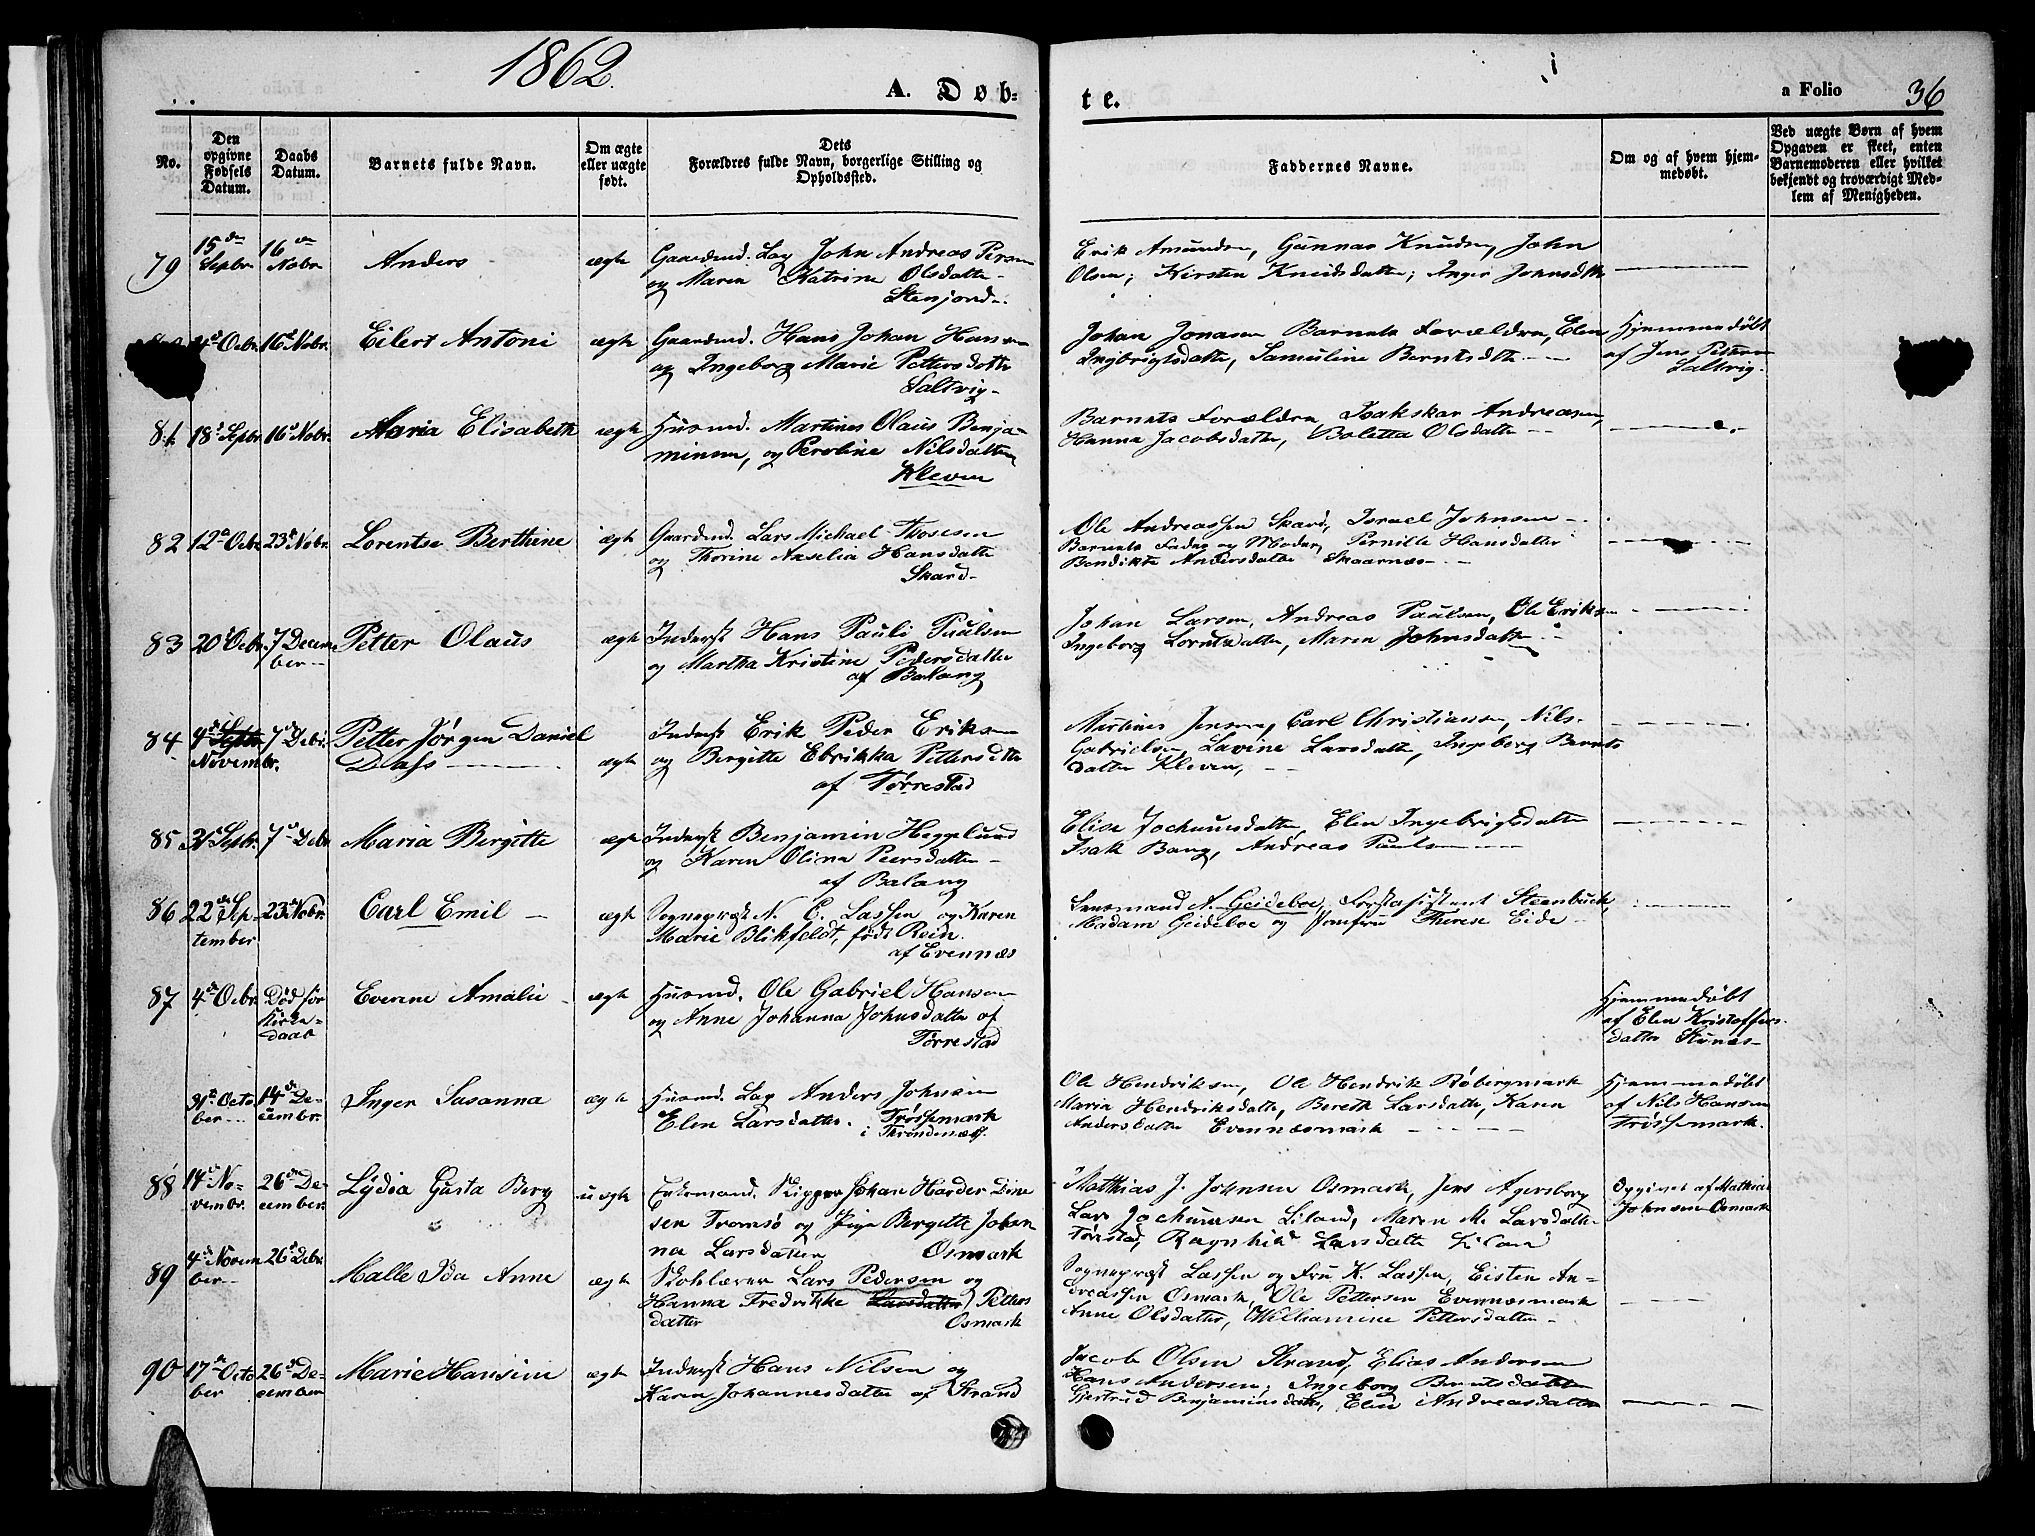 1862.
A. Døb-
te.
a Folio 36
No.
Den opgivne Fødsels Datum.
Daabs Datum.
Barnets fulde Navn.
Om ægte eller uægte født.
Dets Forældres fulde Navn, borgerlige Stilling og Opholdssted.
Faddernes Navne.
Om og af hvem hjemmedøbt.
Ved uægte Børn af hvem Opgaven er skeet, enten Barnemoderen eller hvilket bekjendt og troværdigt Medlem af Menigheden.
79 15de Sepbr 16de Nobr Anders ægte Gaardmd. Lap John Andreas Persen
og Maren Katrine Olsdatter
Stenjord
Erik Amundsen, Gunnar Knudsen, John
Olsen; Kirsten Knudsdatter; Inger Johnsdtr
4de Ocbr. 16de Nobr. Eilert Antoni ægte Gaardmd. Hans Johan Hansen
og Ingeborg Marie Pettersdatter
Saltvig
Johan Jonasen Barnets Forældre, Elen
Ingbrigtsdatter, Samuline Berntsdtr
Hjemmedøbt
af Jens Petters
Saltvig.
81. 18de Sepbr 16de Nobr. Maria Elisabeth ægte Husmd. Martines Olaus Benja-
minsen, og Peroline Nilsdatter
Kleven
Barnets Forældre, Isakskar Andreasen,
Hanna Jacobsdatter, Boletta Olsdatter
82 12te Ocbr 23de Nobr. Lorentse Berthine ægte Gaardmd. Lars Michael Thosesen
og Thorine Anselia Hansdatter
Skard
Ole Andreassen Skard, Israel Johnsen
Barnets Fader og Moder, Pernille Hansdatter
Bendikte Andersdatter Skaarnæs
83 20de Ocbr. 7 Decem-
ber Petter Olaus ægte Inderst Hans Pauli Paulsen
og Martha Kristine Pedersdatter
af Balang
Johan Larsen, Andreas Paulsen, Ole Eriksen
Ingeborg Lorntsdatter, Maren Johnsdatter
84 4de Septbr Novembr. 7de Debr. Petter Jørgen Daniel
Dass ægte Inderst Erik Peder Eriksen
og Birgitte Ebrikka Pettersdtr
af Tørrestad
Martines Jensen, Carl Christiansen, Nils
Gabrielsen, Lavine Larsdatter, Ingeborg Bernts
datter Kleven,
85 Sepbr. 7de Debr Maria Birgitte ægte Inderst Benjamin Heggelund
og Karen Olina Peersdatter
af Balang
Elise Jochumsdatter, Elen Ingebrigtsdatter
Isak Bang, Andreas Paulsen
86 22de Sep-
tember 23de Nobr. Carl Emil ægte Sognepræst N. C. Lassen og Karen
Marie Blikfeldt, født Rein
af Evennæs
Lensmand A. Geideboe, Forstasistent Steenbuck,
Madam Geideboe og Jomfru Therese Eide
87 4de Ocbr. Død før
Kirke-
daab Everine Amalie ægte Husmd. Ole Gabriel Hansen
og Anne Johanna Johnsdatter af
Tørrestad
Hjemmedøbt
af Elen Kristoffers
datter Stunes
31te Octo
ber 14de De-
cembr. Inger Susanna ægte Husmd. Lap Anders Johnsen
Elen Larsdatter. Trøssemark
i Throndenæss.
Ole Hendriksen, Ole Hendrik Bøbergmark
Maria Hendriksdatter, Bereth Larsdatter, Karen
Andersdatter Evennæsmark
Hjemmedøbt
af Nils Hansen
Trøssemark.
88 14de No-
vembr. 26de De-
cember. Lydia Gusta Berg uægte Enkemand. Skipper Johan Harder Dine
sen Tromsø og Pige Bergitte Johan
na Larsdatter Osmark
Mathias J. Johnsen Osmark, Jens Agersborg
Lars Jochumsen Liland, Maren M. Larsdatter
Tørrstad, Ragnhild Larsdatter Liland
Opgivet af Mathias
Johnsen Osmark
89 4de Novem
ber 26de Debr. Malle Ida Anne ægte Skolelærer Lars Pedersen og
Hanna Fredrikke Larsdatter Petters
datter Osmark
Sognepræst Lassen og Fru K. Lassen, Eisten An-
dreassen Osmark, Ole Pettersen Evennæsmark
Anne Olsdatter, Wilhamine Pettersdatter
90 17de Octo
ber 26de De-
cember Marie Hansine ægte Inderst Hans Nilsen og
Karen Johannesdatter af Strand
Jacob Olsen Strand, Elias Andersen
Hans Andersen, Ingeborg Berntsdatter
Gjertrud Benjaminsdatter, Elen Andreasdatter